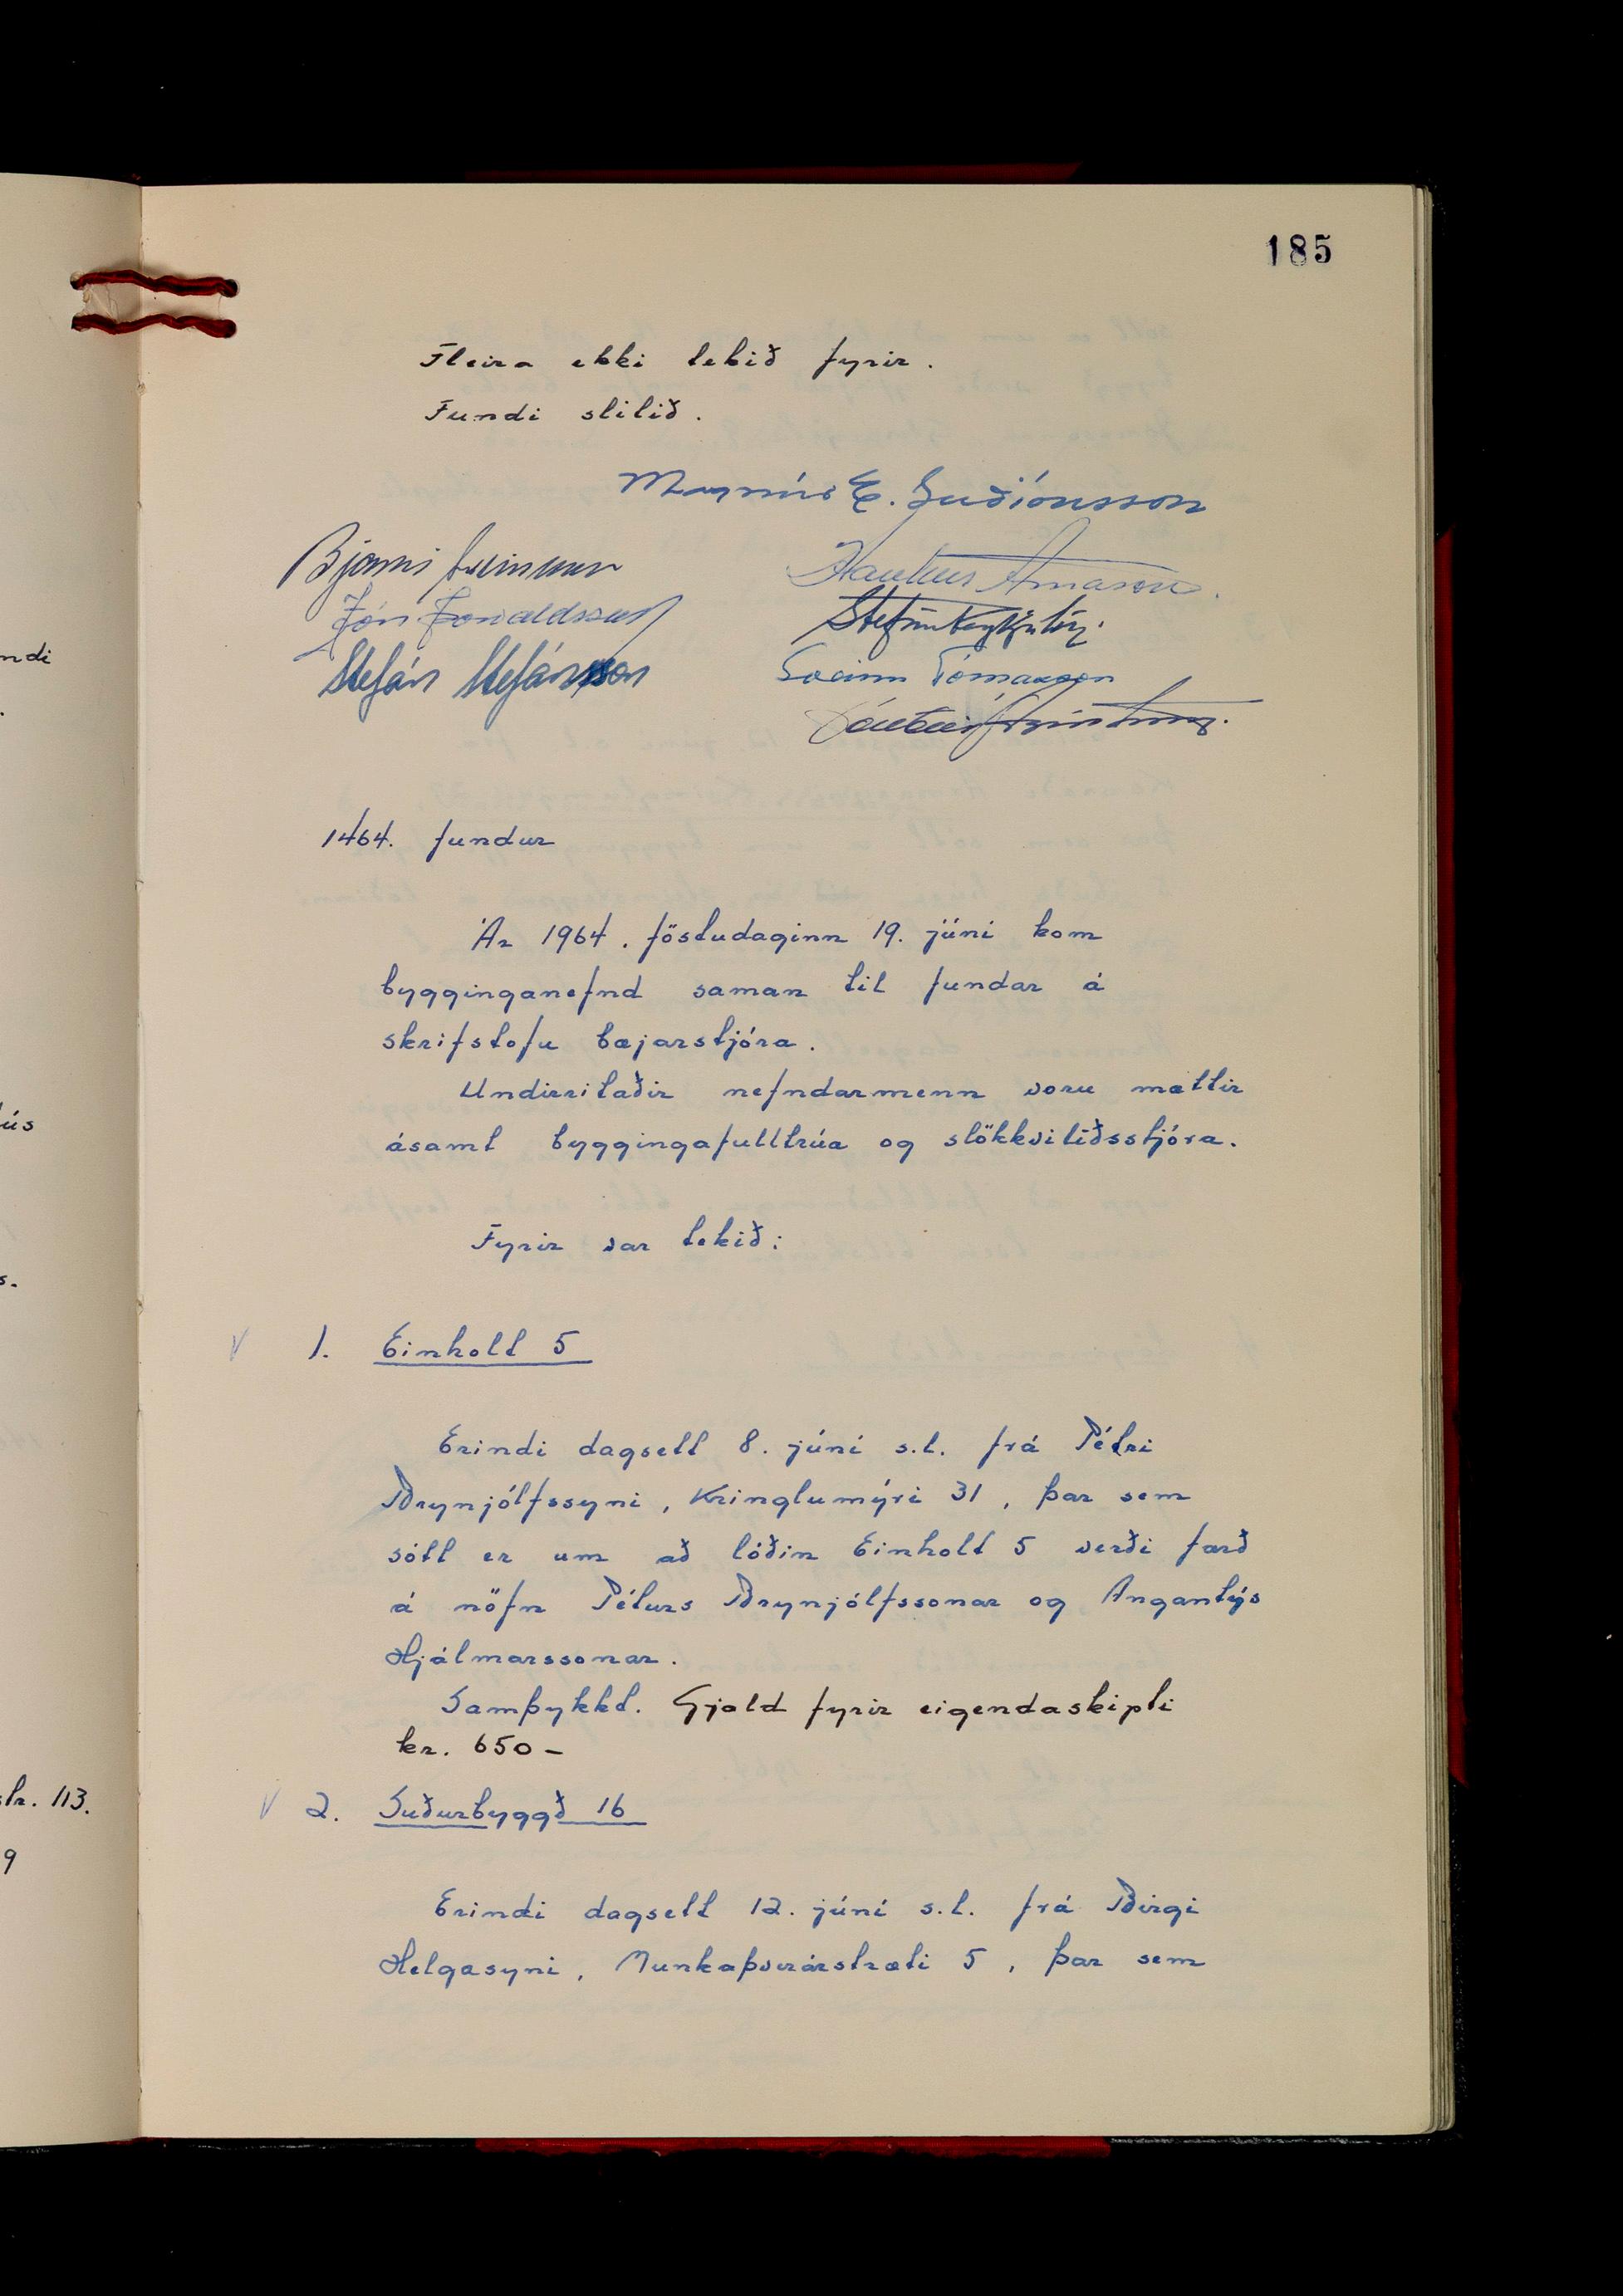 185
Fleira ekki tekið fyrir.
Fundi slitið.
Magnús E. Guðjónsson
Bjarni
Haukur Árnason
Jón Þorvaldsson
Stefán Reykjalín
Stefán Stefánsson
Sveinn Tómasson
1464. fundur
Ár 1964, föstudaginn 19. júní kom
bygginganefnd saman til fundar á
skrifstofu bæjarstjóra.
Undirritaðir nefndarmenn voru mættir
ásamt byggingafulltrúa og slökkviliðsstjóra.
Fyrir var tekið:
V 1. Einholt 5
Erindi dagsett 8. júní s.l. frá Pétri
Brynjólfssyni, Kringlumýri 31, þar sem
sótt er um að lóðin Einholt 5 verði færð
á nöfn Péturs Brynjólfssonar og Angantýs
Hjálmarssonar.
Samþykkt. Gjald fyrir eigendaskipti
kr. 650-
V 2. Suðurbyggð 16
Erindi dagsett 12. júní s.l. frá Birgi
Helgasyni, Munkaþverárstræti 5, þar sem
ndi
ús
s.
str. 113.
9